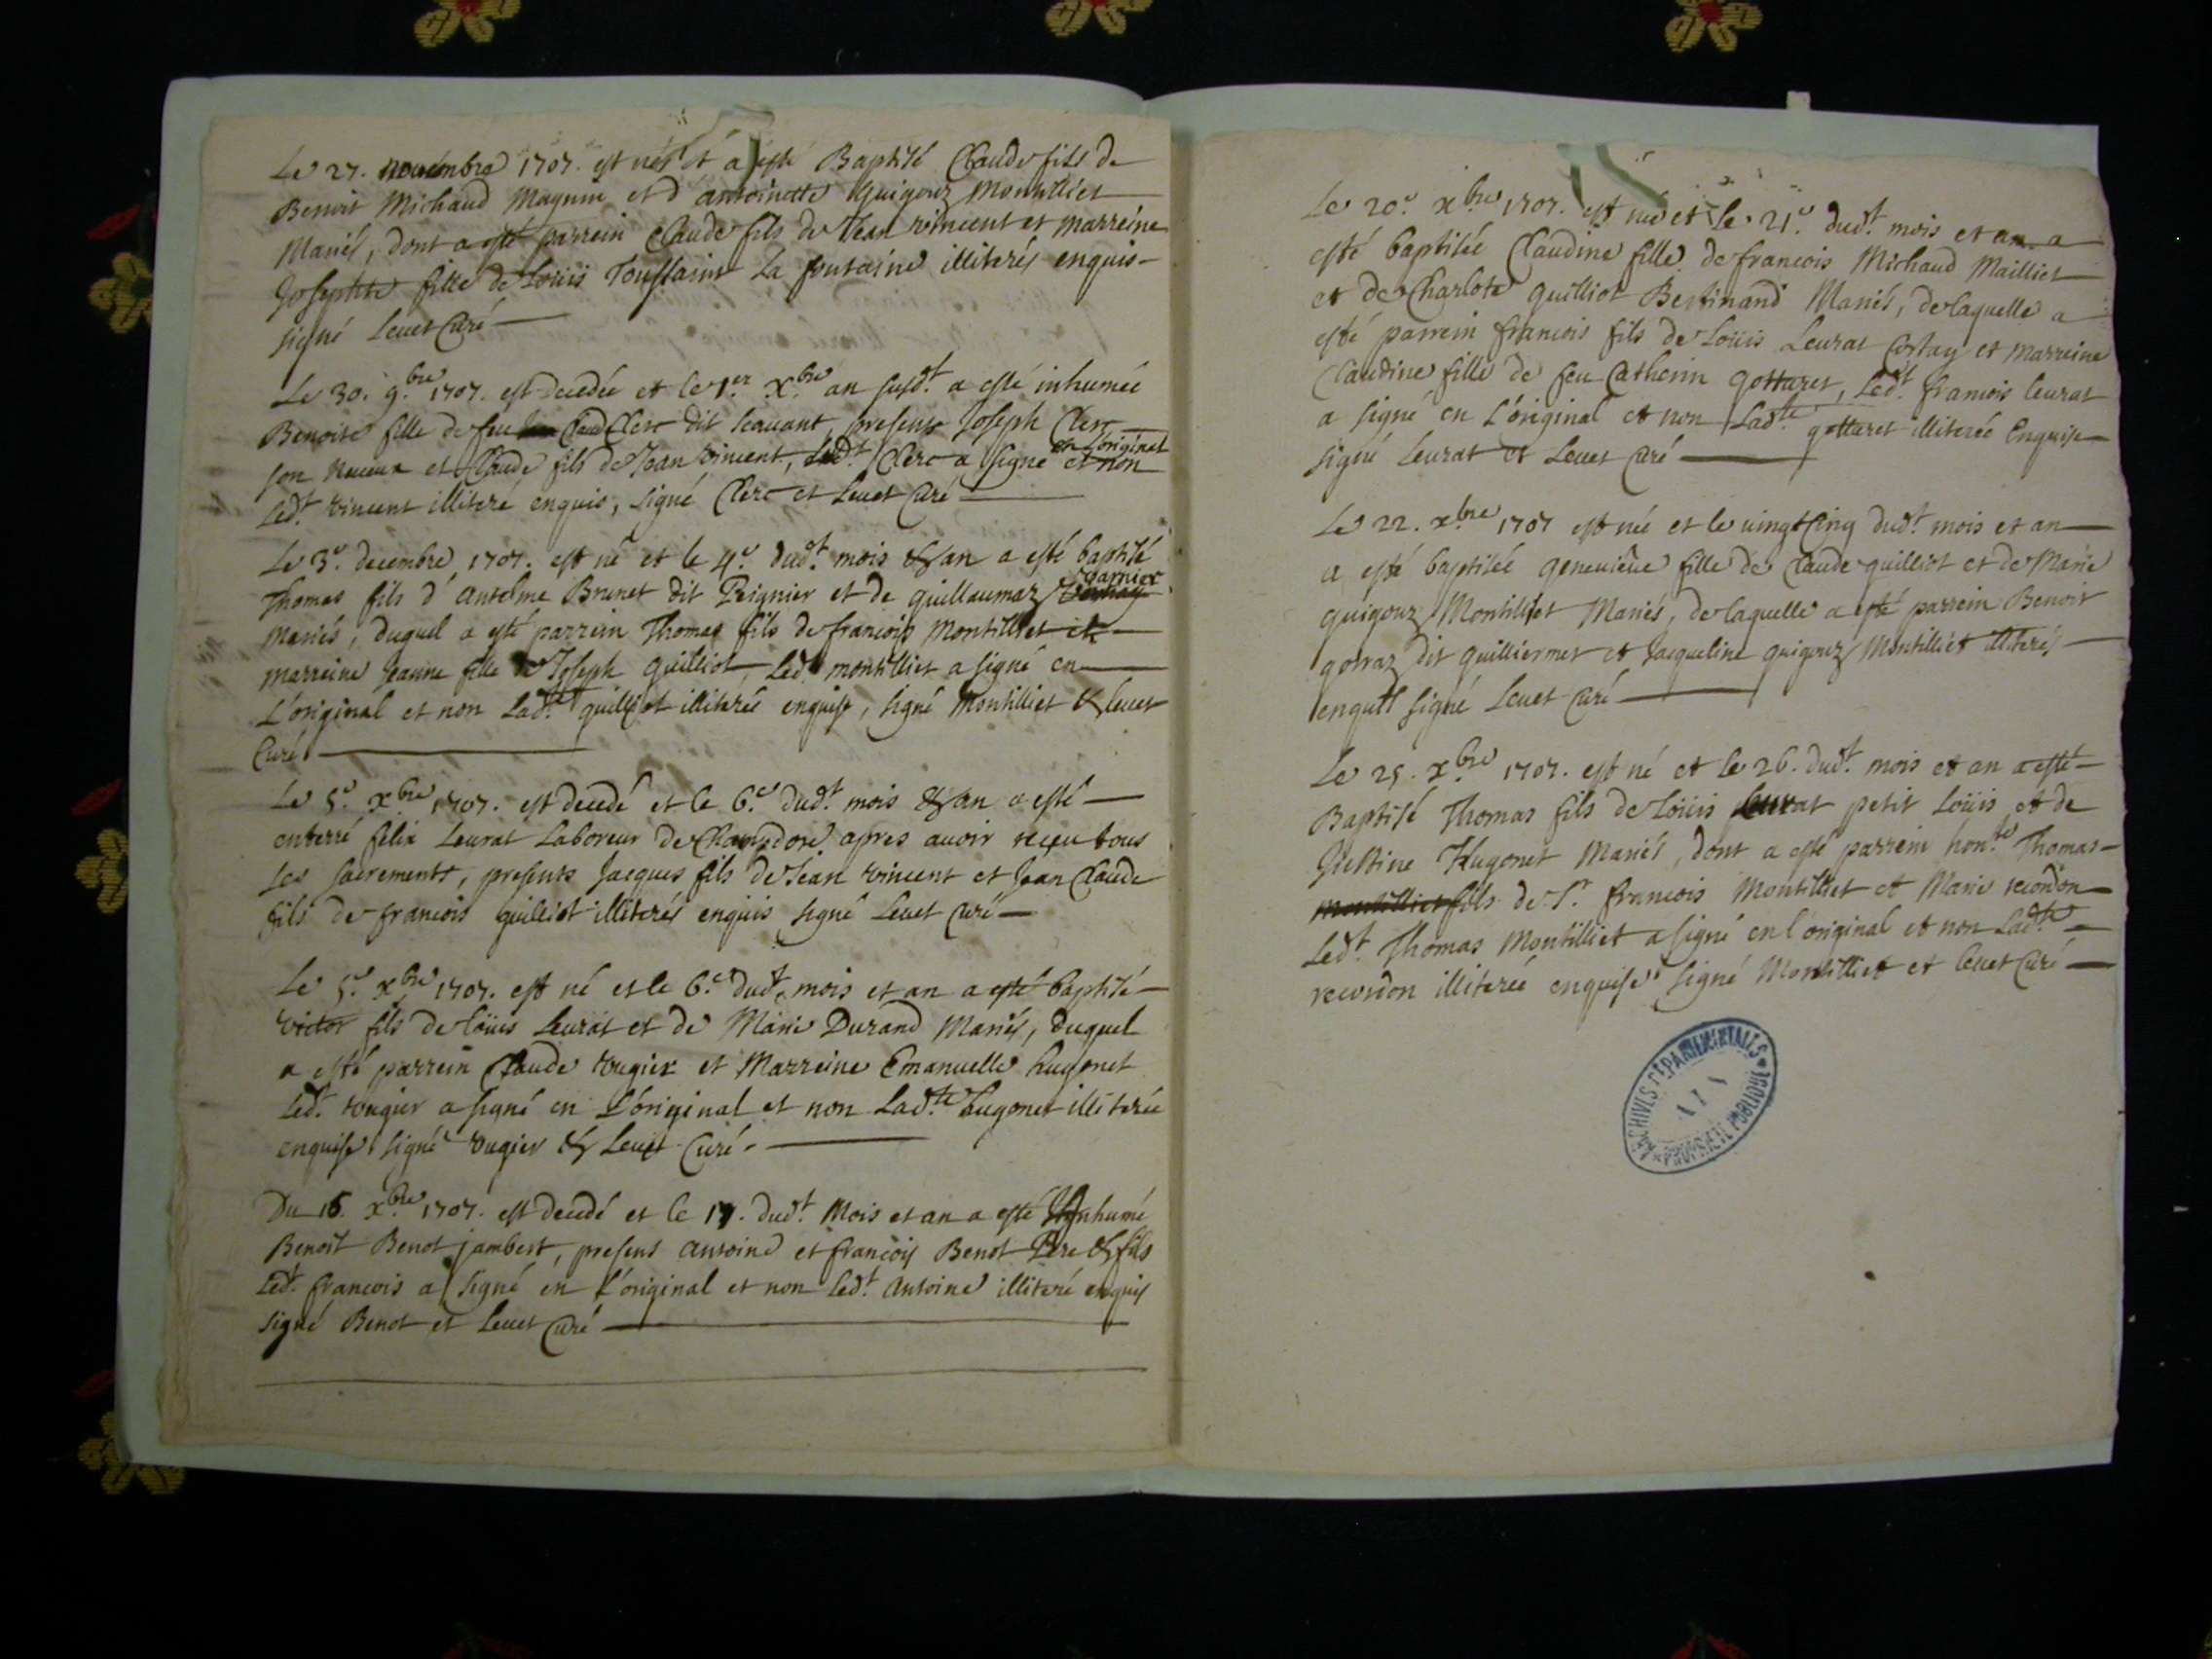 Le 27. novembre 1707. est nés et a esté Baptisé Claude fils de
Benoit Michaud Magnin et d'antoinette Guigouz Montilliet
Mariés, dont a esté parrein Claude fils de Jean vincent et marreine
Josephte fille de Loüis Toussaint La fontaine illiterés enquis
signé Levet Curé
Le 30. 9.bre 1707. est decedée et le 1er. X.bre an susd.t a esté inhumée
Benoite fille de feu Claud Clerc dit scavant, presents Joseph Clerc
son neveux et Claude fils de Jean Vincent, led.t Clerc a signé en L'original et non
Led.t vincent illiteré enquis, signé Clerc et Levet Curé
Le 3.e decembre 1707. est né et le 4.e dud.t mois & an a esté baptisé
Thomas fils d'antelme Brunet dit Peignier et de guillaumaz garnier
mariés, duquel a esté parrein Thomas fils de francois Montilliet et
marreine Jeanne fille de Joseph guilliot, Led.t montilliet a signé en
L'original et non Lad.te guilliot illiterée enquise, signé Montilliet & levet
Curé
Le 5.e X.bre 1707. est decedé et le 6.e dud.t mois & an a esté
enterré felix Leurat Laboreur de Champdore apres avoir reçeu tous
Les sacrements, presents Jacques fils de Jean vincent et Jean Claude
fils de francois guilliot illiterés enquis signé Levet Curé
Le 5.e X.bre 1707. est né et le 6.e dud.t mois et an a esté baptisé
victor fils de loüis Leurat et de Marie Durand Mariés, duquel
a esté parrein Claude vugier et Marreine Emanuelle hugonet
Led.t vugier a signé en L'original et non Lad.te hugonet illiterée
enquise signé vugier & Levet Curé.
Du 16. X.bre 1707. est decedé et le 17. dud.t Mois et an a esté Inhumé
Benoit Benot jambert, presens antoine et francois Benot Pere & fils
Led.t francois a signé en L'original et non Led.t antoine illiteré enquis
signé Benot et Levet Curé
Le 20.e X.bre 1707. est née et le 21.e dud.t mois et an a
esté baptisée Claudine fille de francois Michaud Mailliet
et de Charlote guilliot Bertinand Mariés, de laquelle a
esté parrein francois fils de Loüis Leurat Costaz et marreine
Claudine fille de feu Catherin gottaret, Led.t francois leurat
a signé en L'original et non Lad.te gottaret illiterée Enquise
signé Leurat et Levet Curé
Le 22. X.bre 1707 est née et le vingt cinq dud.t mois et an
a esté baptisée genevieve fille de Claude guilliot et de Marie
guigouz Montilliet Mariés, de laquelle a esté parrein Benoit
gorraz dit guilliermet et Jacqueline guigouz Montilliet illiterés
enquis signé Levet Curé
Le 25. X.bre 1707. est né et le 26. dud.t mois et an a esté
Baptisé Thomas fils de Loüis Leurat petit Loüis et de
Justine Hugonet Mariés, dont a esté parrein hon.te Thomas
montilliet fils de S.r francois Montilliet et Marie recordon
Led.t Thomas Montilliet a signé en l'original et non Lad.te
recordon illiterée enquise signé Montilliet et levet Curé
ARCHIVES DEPARTEMENTALES
PROPRIETE PUBLIQUE